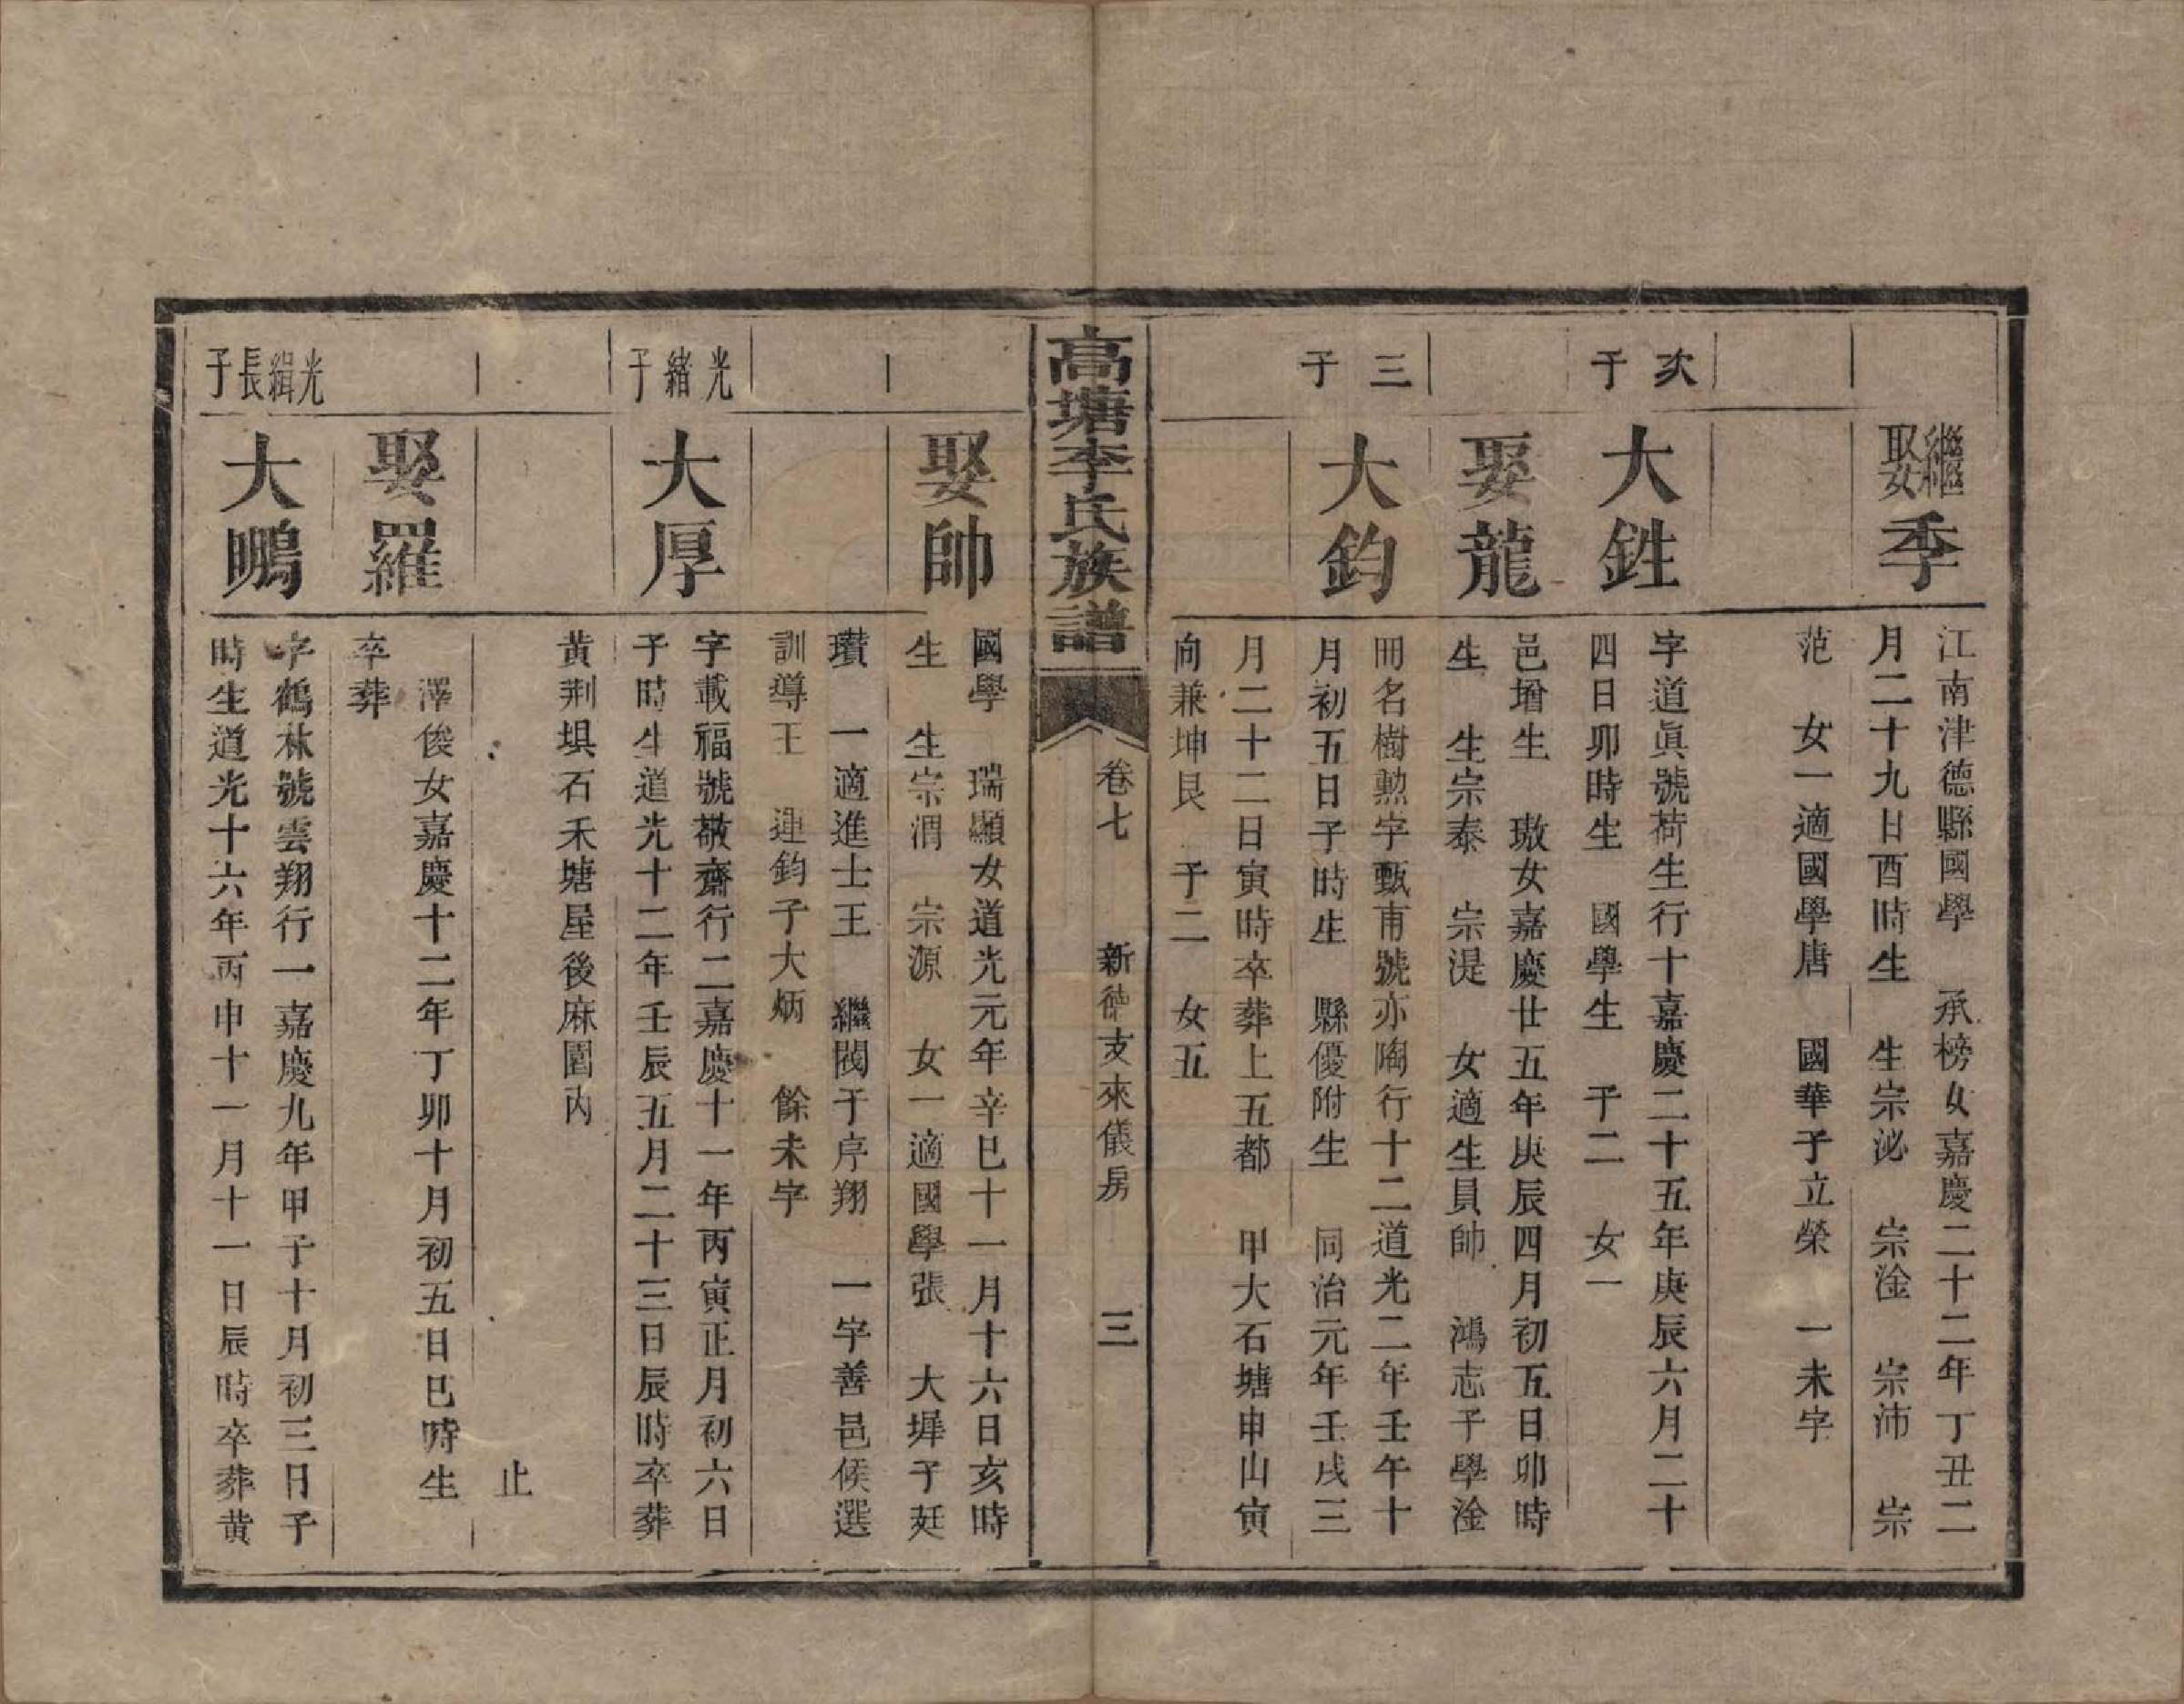 繼娶季
江南津德縣國學　承榜女嘉慶二十二年丁丑二
月二十九日酉時生　生宗泌　宗淦　宗沛　宗
范　女一適國學唐　國華子立榮　一未字
次子
大鉎
字道眞號荷生行十嘉慶二十五年庚辰六月二十
四日卯時生　國學生　子二　女一
娶龍
邑增生　璈女嘉慶廿五年庚辰四月初五日卯時
生　生宗泰　宗湜　女適生員帥　鴻志子學淦
三子
大鈞
冊名樹勲字甄甫號亦陶行十二道光二年壬午十
月初五日子時生　縣優附生　同治元年壬戌三
月二十二日寅時卒葬上五都　甲大石塘申山寅
向兼坤艮　子二　女五
高塘李氏族譜
卷七　新德支來儀房　三
娶帥
國學　瑞顯女道光元年辛巳十一月十六日亥時
生　生宗渭　宗源　女一適國學張　大墀子廷
瓚　一適進士王　繼閥子序翔　一字善邑候選
訓導王　運鈞子大炳　餘未字
光緒子
大厚
字載福號敬齋行二嘉慶十一年丙寅正月初六日
子時生道光十二年壬辰五月二十三日辰時卒葬
黃荆垻石禾塘屋後麻園内
止
娶羅
澤俊女嘉慶十二年丁卯十月初五日巳時生
卒葬
光緝長子
大鵬
字鶴林號雲翔行一嘉慶九年甲子十月初三日子
時生道光十六年丙申十一月十一日辰時卒葬黃